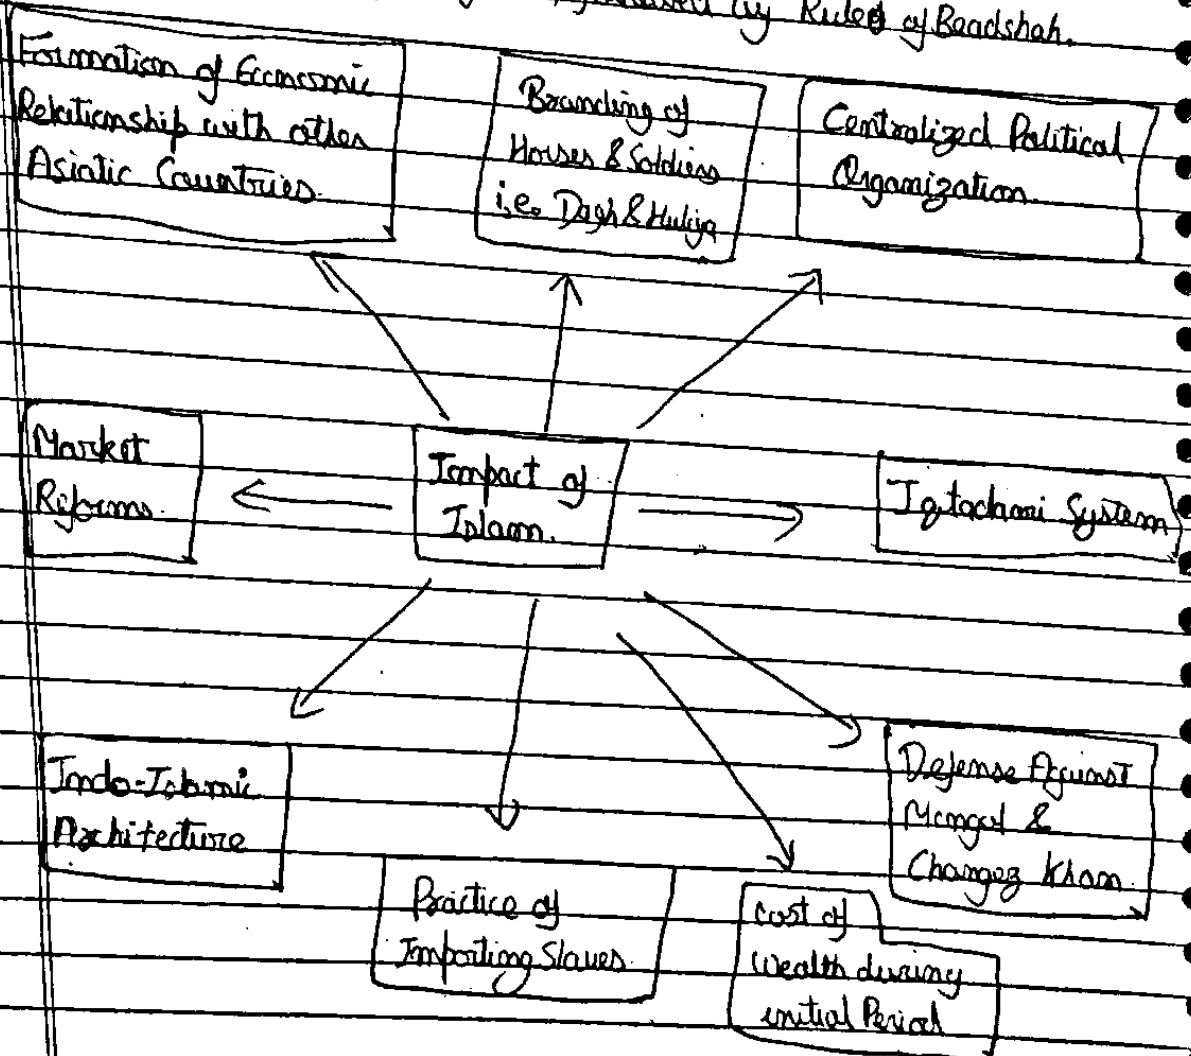 by Rules of Baadshah.
Formation of Economic
Relationship with other
Asiatic Countries.
Branding of
Horses & Soldiers
i.e. Dagh & Huliya
Centralized Political
Organization.
Market
Reforms.
Impact of
Islam.
Iqtadari System
Indo-Islamic
Architecture
Practice of
Importing Slaves.
Cost of
Wealth during
initial Period
Defense Against
Mongol &
Changez Khan.